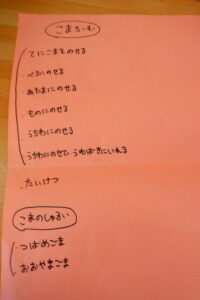 こまちーむ
てにこまをのせる
べろにのせる
あたまにのせる
ものにのせる
うちわにのせる
うちわにのせて うわばきにいれる
・たいけつ
こまのしゅるい
・つばめごま
・おおやまごま